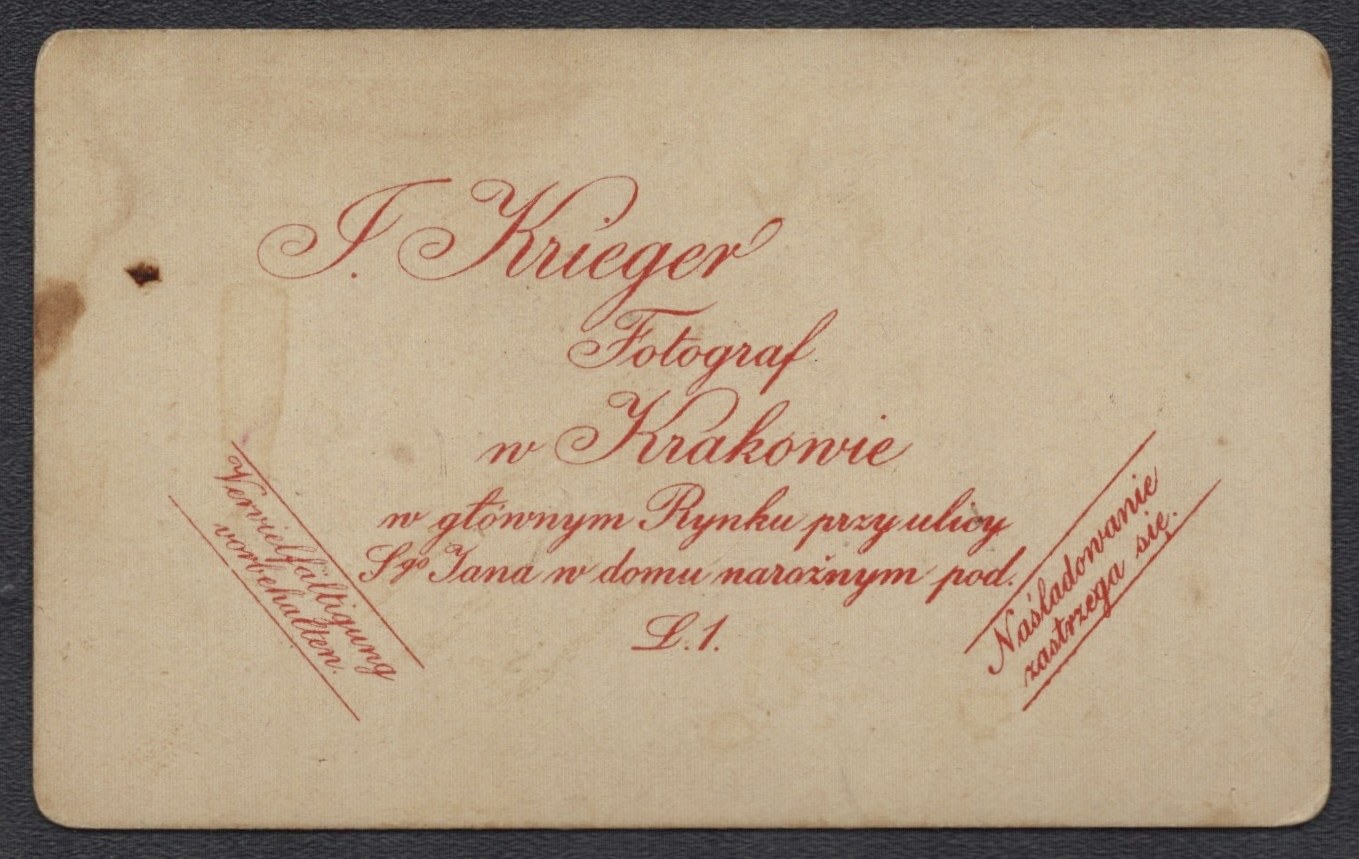 I. Krieger
Fotograf
w Krakowie
w głównym Rynku przy ulicy
Sgo Jana w domu narożnym pod.
L. 1.
Vervielfältigung
vorbehalten.
Naśladowanie
zastrzega się.